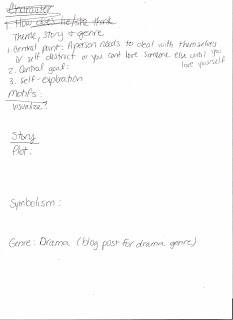 Character
1 How does he/she think
Theme, Story & genre
1. Central point: A person needs to deal with themselves
or self distruct or you cant love someone else until you
love yourself
2. Central goal:
3. Self-exploration
Motifs:
Visualize?
Story
Plot:
Symbolism:
Genre: Drama (blog post for drama genre)